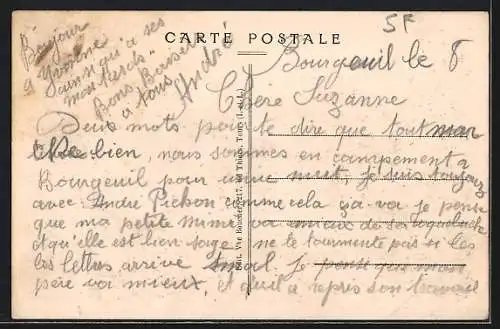 5F
CARTE POSTALE
Bonjour
à Yvonne
ainsi qu'à ses
Bons Baisers
à tous
André
Bourgeuil le 8
Chère Suzanne
Deux mots pour te dire que tout mar
che bien, nous sommes en campement à
Bourgeuil pour une nuit, je suis toujours
avec André Pichon comme cela ça va je pense
que ma petite mimi va mieux de sa coqueluche
et qu'elle est bien sage. ne te tourmente pas si les
les lettres arrive mal. Je pense que mon
père va mieux, et qu'il a repris son travail